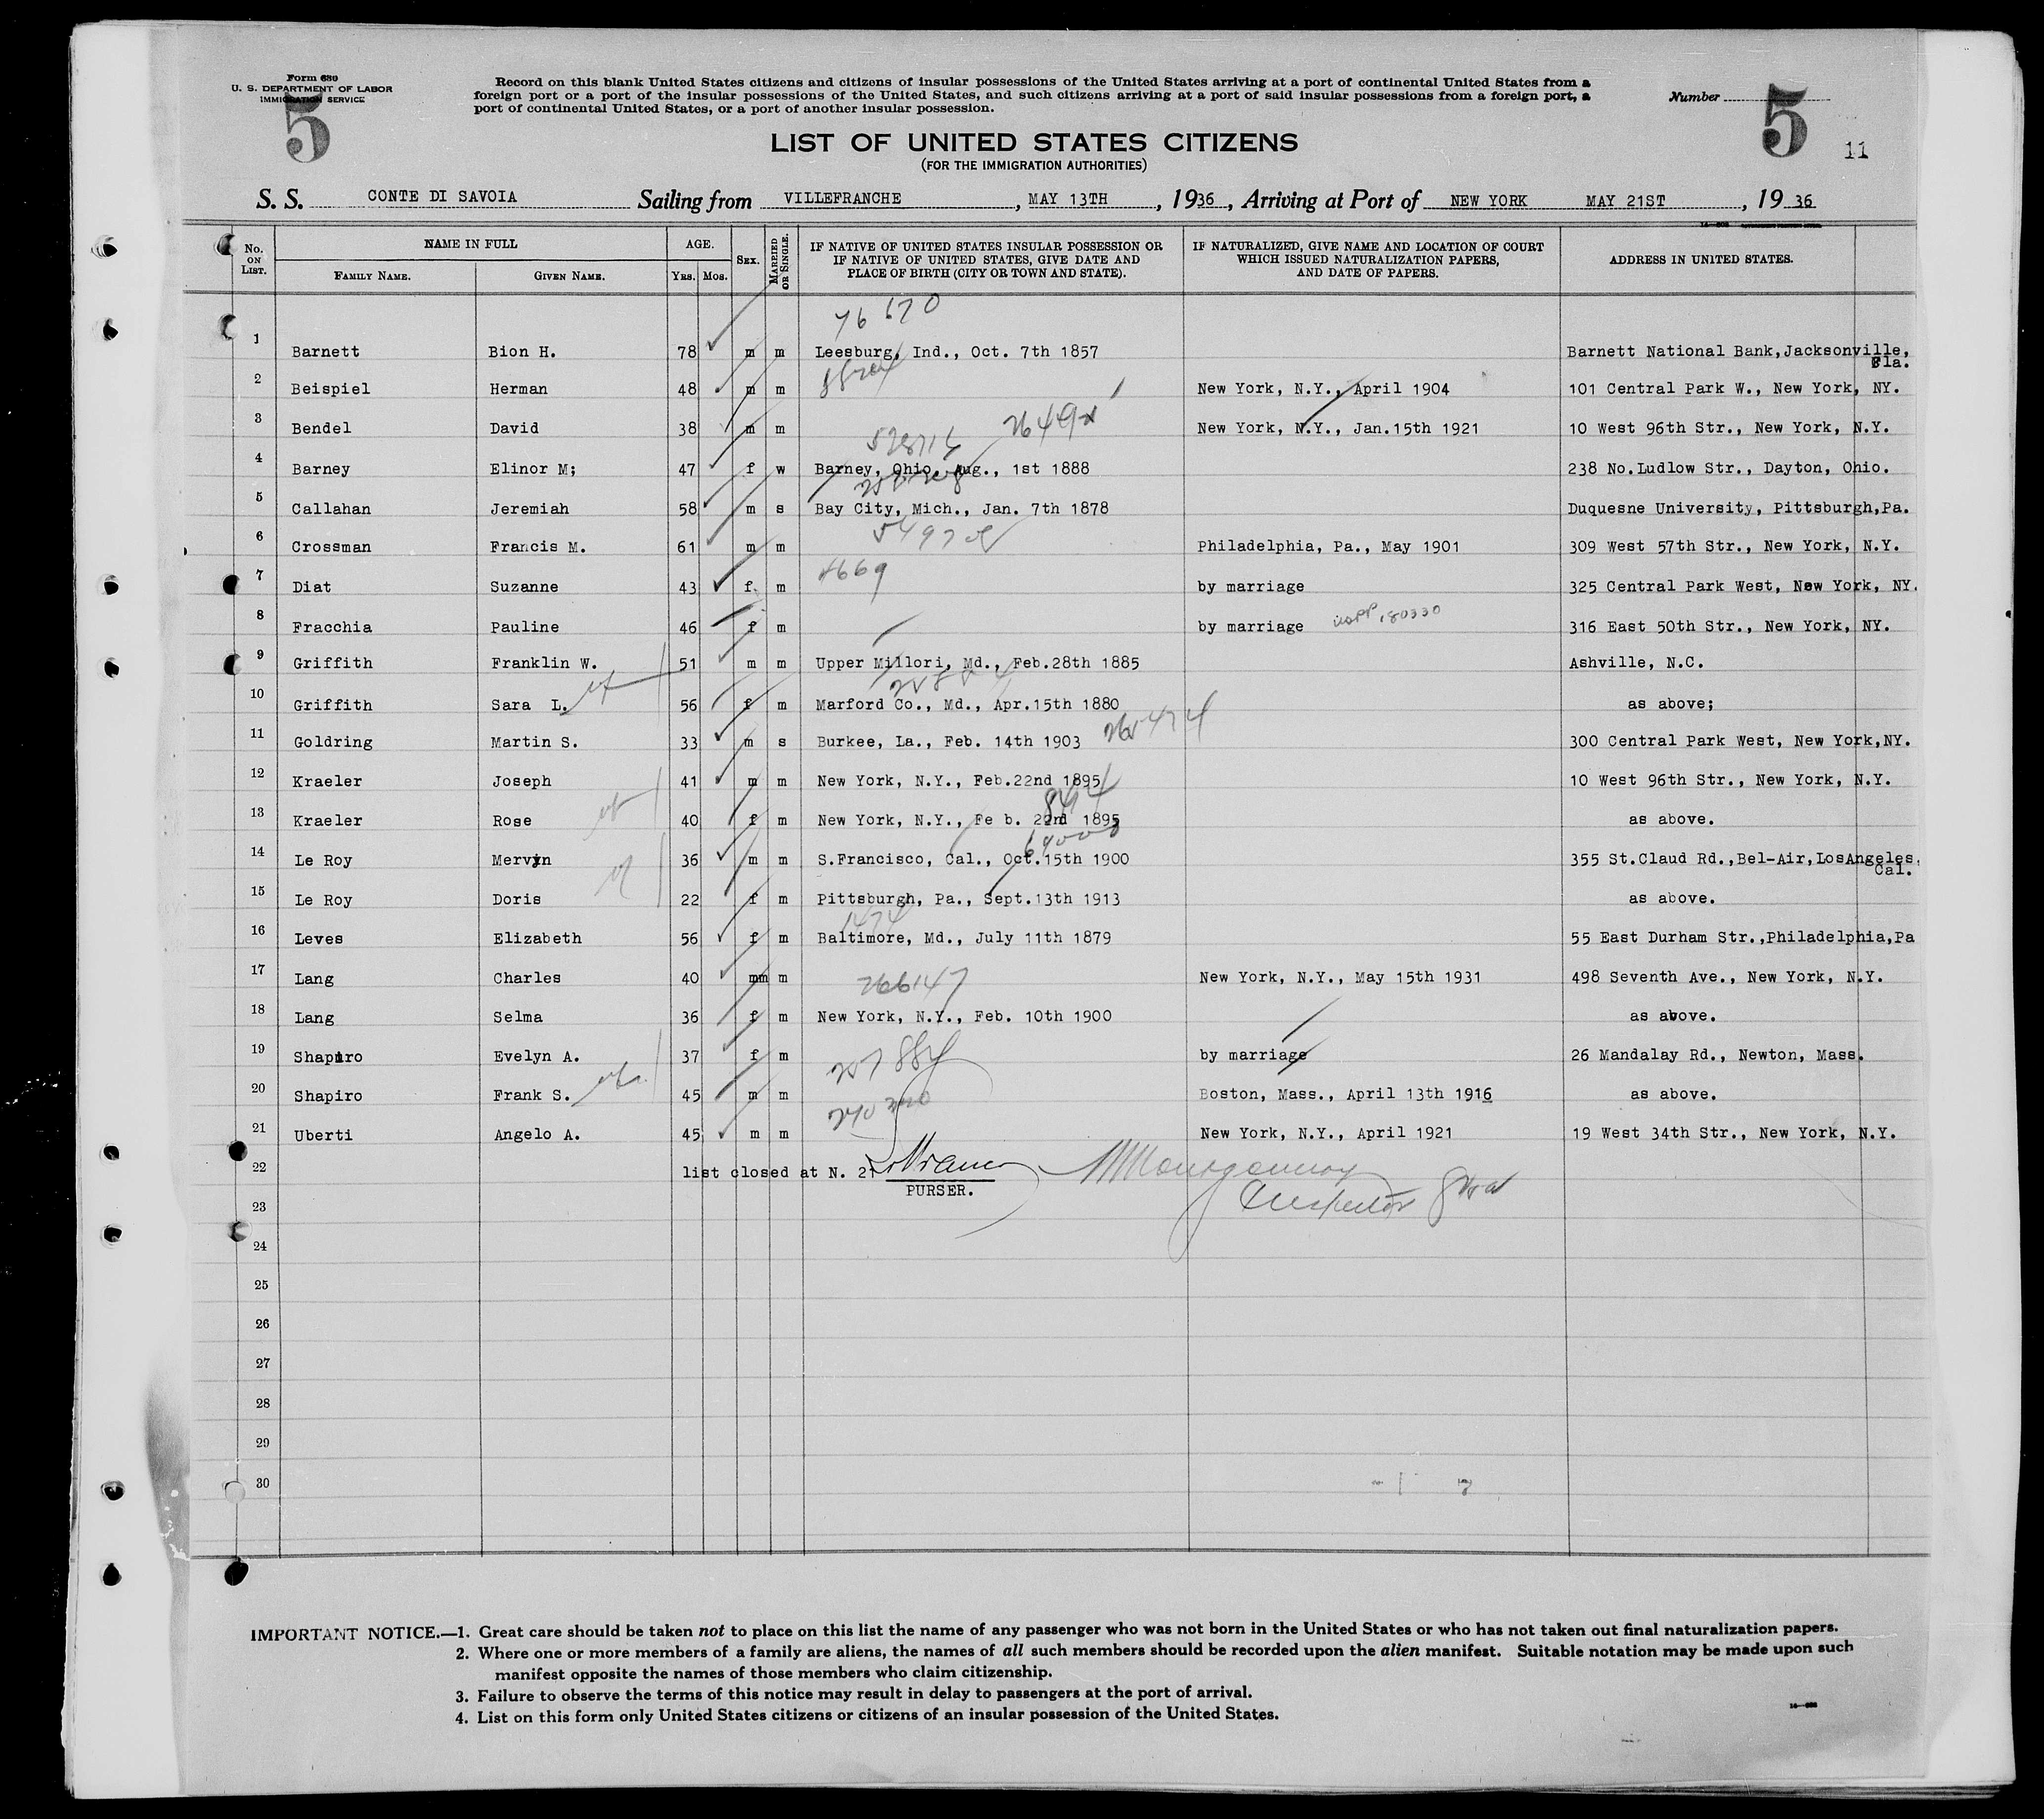 Form 630
U. S. DEPARTMENT OF LABOR
IMMIGRATION SERVICE
5
Record on this blank United States citizens and citizens of insular possessions of the United States arriving at a port of continental United States from a
foreign port or a port of the insular possessions of the United States, and such citizens arriving at a port of said insular possessions from a foreign port, a
port of continental United States, or a port of another insular possession.
Number 5
11
LIST OF UNITED STATES CITIZENS
(FOR THE IMMIGRATION AUTHORITIES)
S. S. CONTE DI SAVOIA Sailing from VILLEFRANCHE, MAY 13TH, 1936, Arriving at Port of NEW YORK MAY 21ST, 1936
No. ON LIST. NAME IN FULL FAMILY NAME. GIVEN NAME. AGE. YRS. MOS. SEX. MARRIED OR SINGLE. IF NATIVE OF UNITED STATES INSULAR POSSESSION OR IF NATIVE OF UNITED STATES, GIVE DATE AND PLACE OF BIRTH (CITY OR TOWN AND STATE). IF NATURALIZED, GIVE NAME AND LOCATION OF COURT WHICH ISSUED NATURALIZATION PAPERS, AND DATE OF PAPERS. ADDRESS IN UNITED STATES.
76670
1 Barnett Bion H. 78 m m Leesburg, Ind., Oct. 7th 1857 Barnett National Bank,Jacksonville, Fla.
2 Beispiel Herman 48 m m New York, N.Y., April 1904 101 Central Park W., New York, NY.
3 Bendel David 38 m m New York, N.Y., Jan.15th 1921 10 West 96th Str., New York, N.Y.
4 Barney Elinor M; 47 f w Barney, Ohio, Aug., 1st 1888 238 No.Ludlow Str., Dayton, Ohio.
5 Callahan Jeremiah 58 m s Bay City, Mich., Jan. 7th 1878 Duquesne University, Pittsburgh,Pa.
6 Crossman Francis M. 61 m m Philadelphia, Pa., May 1901 309 West 57th Str., New York, N.Y.
7 Diat Suzanne 43 f. m 4669 by marriage 325 Central Park West, New York, NY.
8 Fracchia Pauline 46 f m by marriage 180330 316 East 50th Str., New York, NY.
9 Griffith Franklin W. 51 m m Upper Millori, Md., Feb.28th 1885 Ashville, N.C.
10 Griffith Sara L. 56 f m Marford Co., Md., Apr.15th 1880 as above;
11 Goldring Martin S. 33 m s Burkee, La., Feb. 14th 1903 265474 300 Central Park West, New York,NY.
12 Kraeler Joseph 41 m m New York, N.Y., Feb.22nd 1895 10 West 96th Str., New York, N.Y.
13 Kraeler Rose 40 f m New York, N.Y., Fe b. 22nd 1895 as above.
14 Le Roy Mervyn 36 m m S.Francisco, Cal., Oct.15th 1900 355 St.Claud Rd.,Bel-Air,LosAngeles. Cal.
15 Le Roy Doris 22 f m Pittsburgh, Pa., Sept.13th 1913 as above.
1474
16 Leves Elizabeth 56 f m Baltimore, Md., July 11th 1879 55 East Durham Str.,Philadelphia,Pa
17 Lang Charles 40 mm m 266147 New York, N.Y., May 15th 1931 498 Seventh Ave., New York, N.Y.
18 Lang Selma 36 f m New York, N.Y., Feb. 10th 1900 as above.
19 Shapiro Evelyn A. 37 f m by marriage 26 Mandalay Rd., Newton, Mass.
20 Shapiro Frank S. 45 m m Boston, Mass., April 13th 1916 as above.
21 Uberti Angelo A. 45 m m New York, N.Y., April 1921 19 West 34th Str., New York, N.Y.
22 list closed at N. 21 Montgomery
PURSER.
Inspector
23
24
25
26
27
28
29
30
IMPORTANT NOTICE.—1. Great care should be taken not to place on this list the name of any passenger who was not born in the United States or who has not taken out final naturalization papers.
2. Where one or more members of a family are aliens, the names of all such members should be recorded upon the alien manifest. Suitable notation may be made upon such
manifest opposite the names of those members who claim citizenship.
3. Failure to observe the terms of this notice may result in delay to passengers at the port of arrival.
4. List on this form only United States citizens or citizens of an insular possession of the United States.